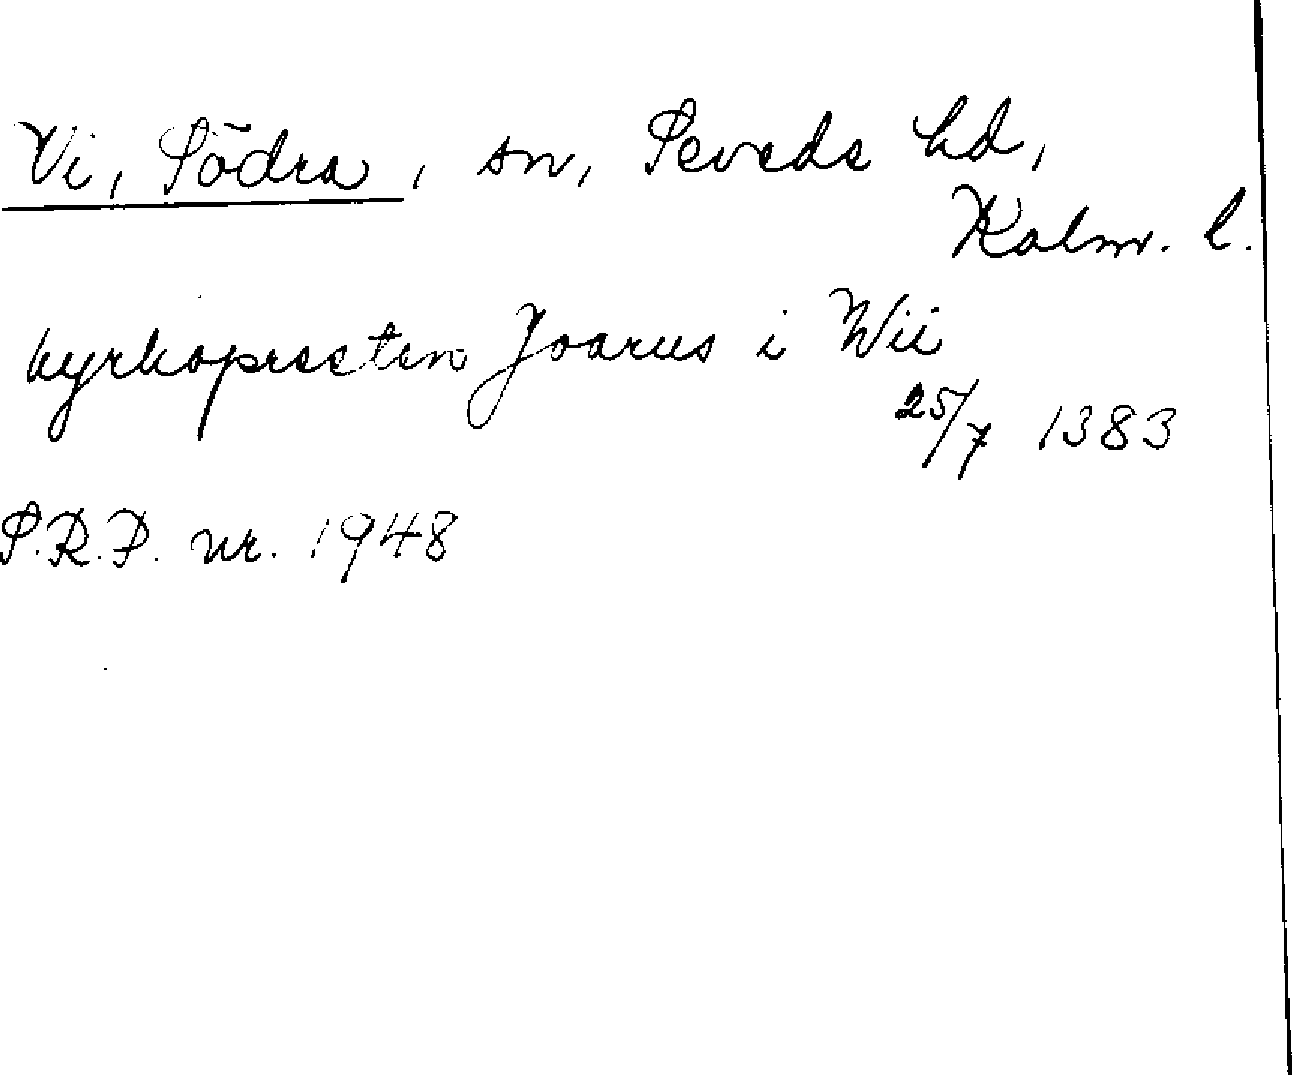 Vi, Södra, sn, Sevede hd,
Kalm. l.
kyrkopresten Joarus i Wii
25/7 1383
S.R.P. nr. 1948